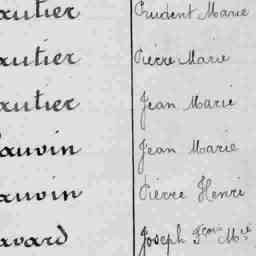 autier Prudent Marie
autier Pierre Marie
autier Jean Marie
auvin Jean Marie
auvin Pierre Henri
avard Joseph Fçois Mie